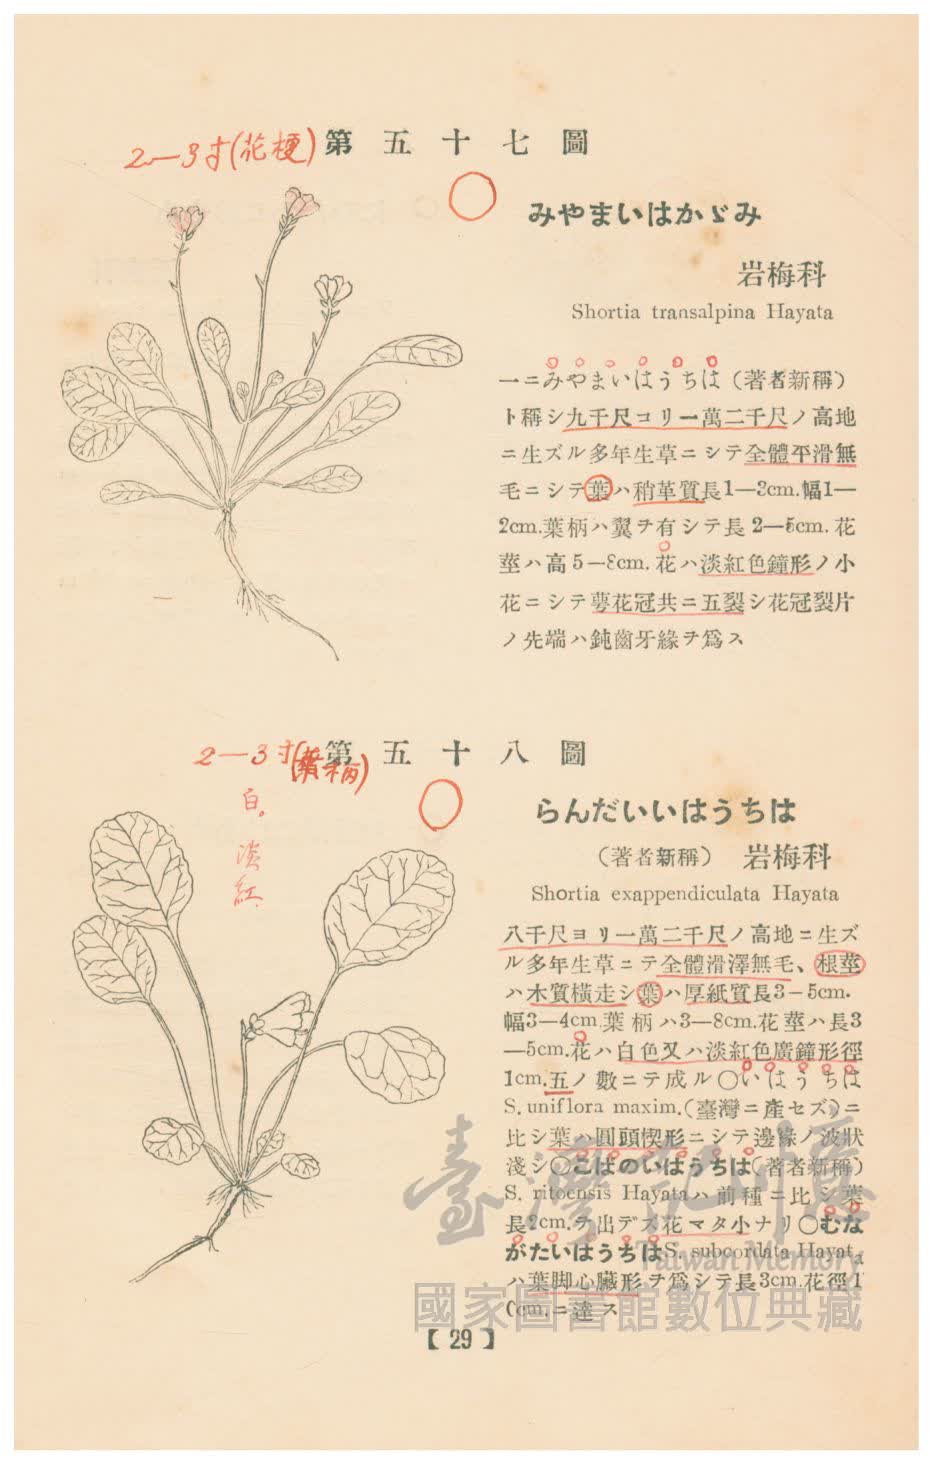 2—3寸(花梗)
第五十七圖
みやまいはかゞみ
岩梅科
Shortia transalpina Hayata
一ニみやまいはうちは（著者新稱）
ト稱シ九千尺コリー萬二千尺ノ高地
ニ生ズル多年生草ニシテ全體平滑無
毛ニシテ葉ハ稍革質長1—3cm.幅1—
2cm.葉柄ハ翼ヲ有シテ長2—5cm.花
莖ハ高5—8cm.花ハ淡紅色鐘形ノ小
花ニシテ萼花冠共ニ五裂シ花冠裂片
ノ先端ハ鈍齒牙緣ヲ爲ス
2—3寸(葉柄)
第五十八圖
白。
淡紅.
らんだいいはうちは
（著者新稱） 岩梅科
Shortia exappendiculata Hayata
八千尺ヨリ一萬二千尺ノ高地ニ生ズ
ル多年生草ニテ全體滑澤無毛、根莖
ハ木質橫走シ葉ハ厚紙質長3—5cm.
幅3—4cm.葉柄ハ3—8cm.花莖ハ長3
—5cm.花ハ白色又ハ淡紅色廣鐘形徑
1cm.五ノ數ニテ成ル〇いはうちは
S. uniflora maxim.(臺灣ニ產セズ)ニ
比シ葉ハ圓頭楔形ニシテ邊緣ノ波狀
淺シ〇こばのいはうちは(著者新稱)
S. ritoensis Hayataハ前種ニ比シ葉
長2cm.ヲ出デズ花マタ小ナリ〇むな
がたいはうちはS. subcordata Hayata
ハ葉脚心臟形ヲ爲シテ長3cm.花徑1
0cm.ニ達ス
【29】
臺灣記憶
Taiwan Memory
國家圖書館數位典藏